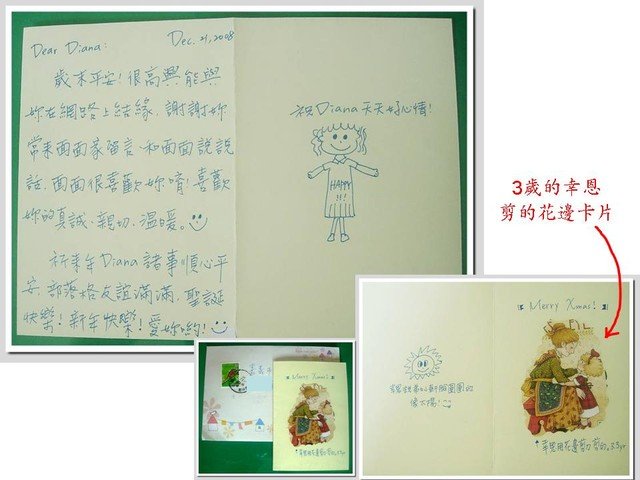 Dear Diana:
Dec. 21, 2008
歲末平安!很高興能與
妳在網路上結緣,謝謝妳
常來面面家留言,和面面說說
話,面面很喜歡妳唷!喜歡
妳的真誠、親切、溫暖。
祈來年Diana諸事順心平
安,部落格友誼滿滿,聖誕
快樂!新年快樂!愛妳喲!
祝Diana天天好心情!
HAPPY
!!!
3歲的幸恩
剪的花邊卡片
Merry Xmas!
Merry Xmas!
像太陽!
↑幸恩用花邊剪刀剪的。3.3yr